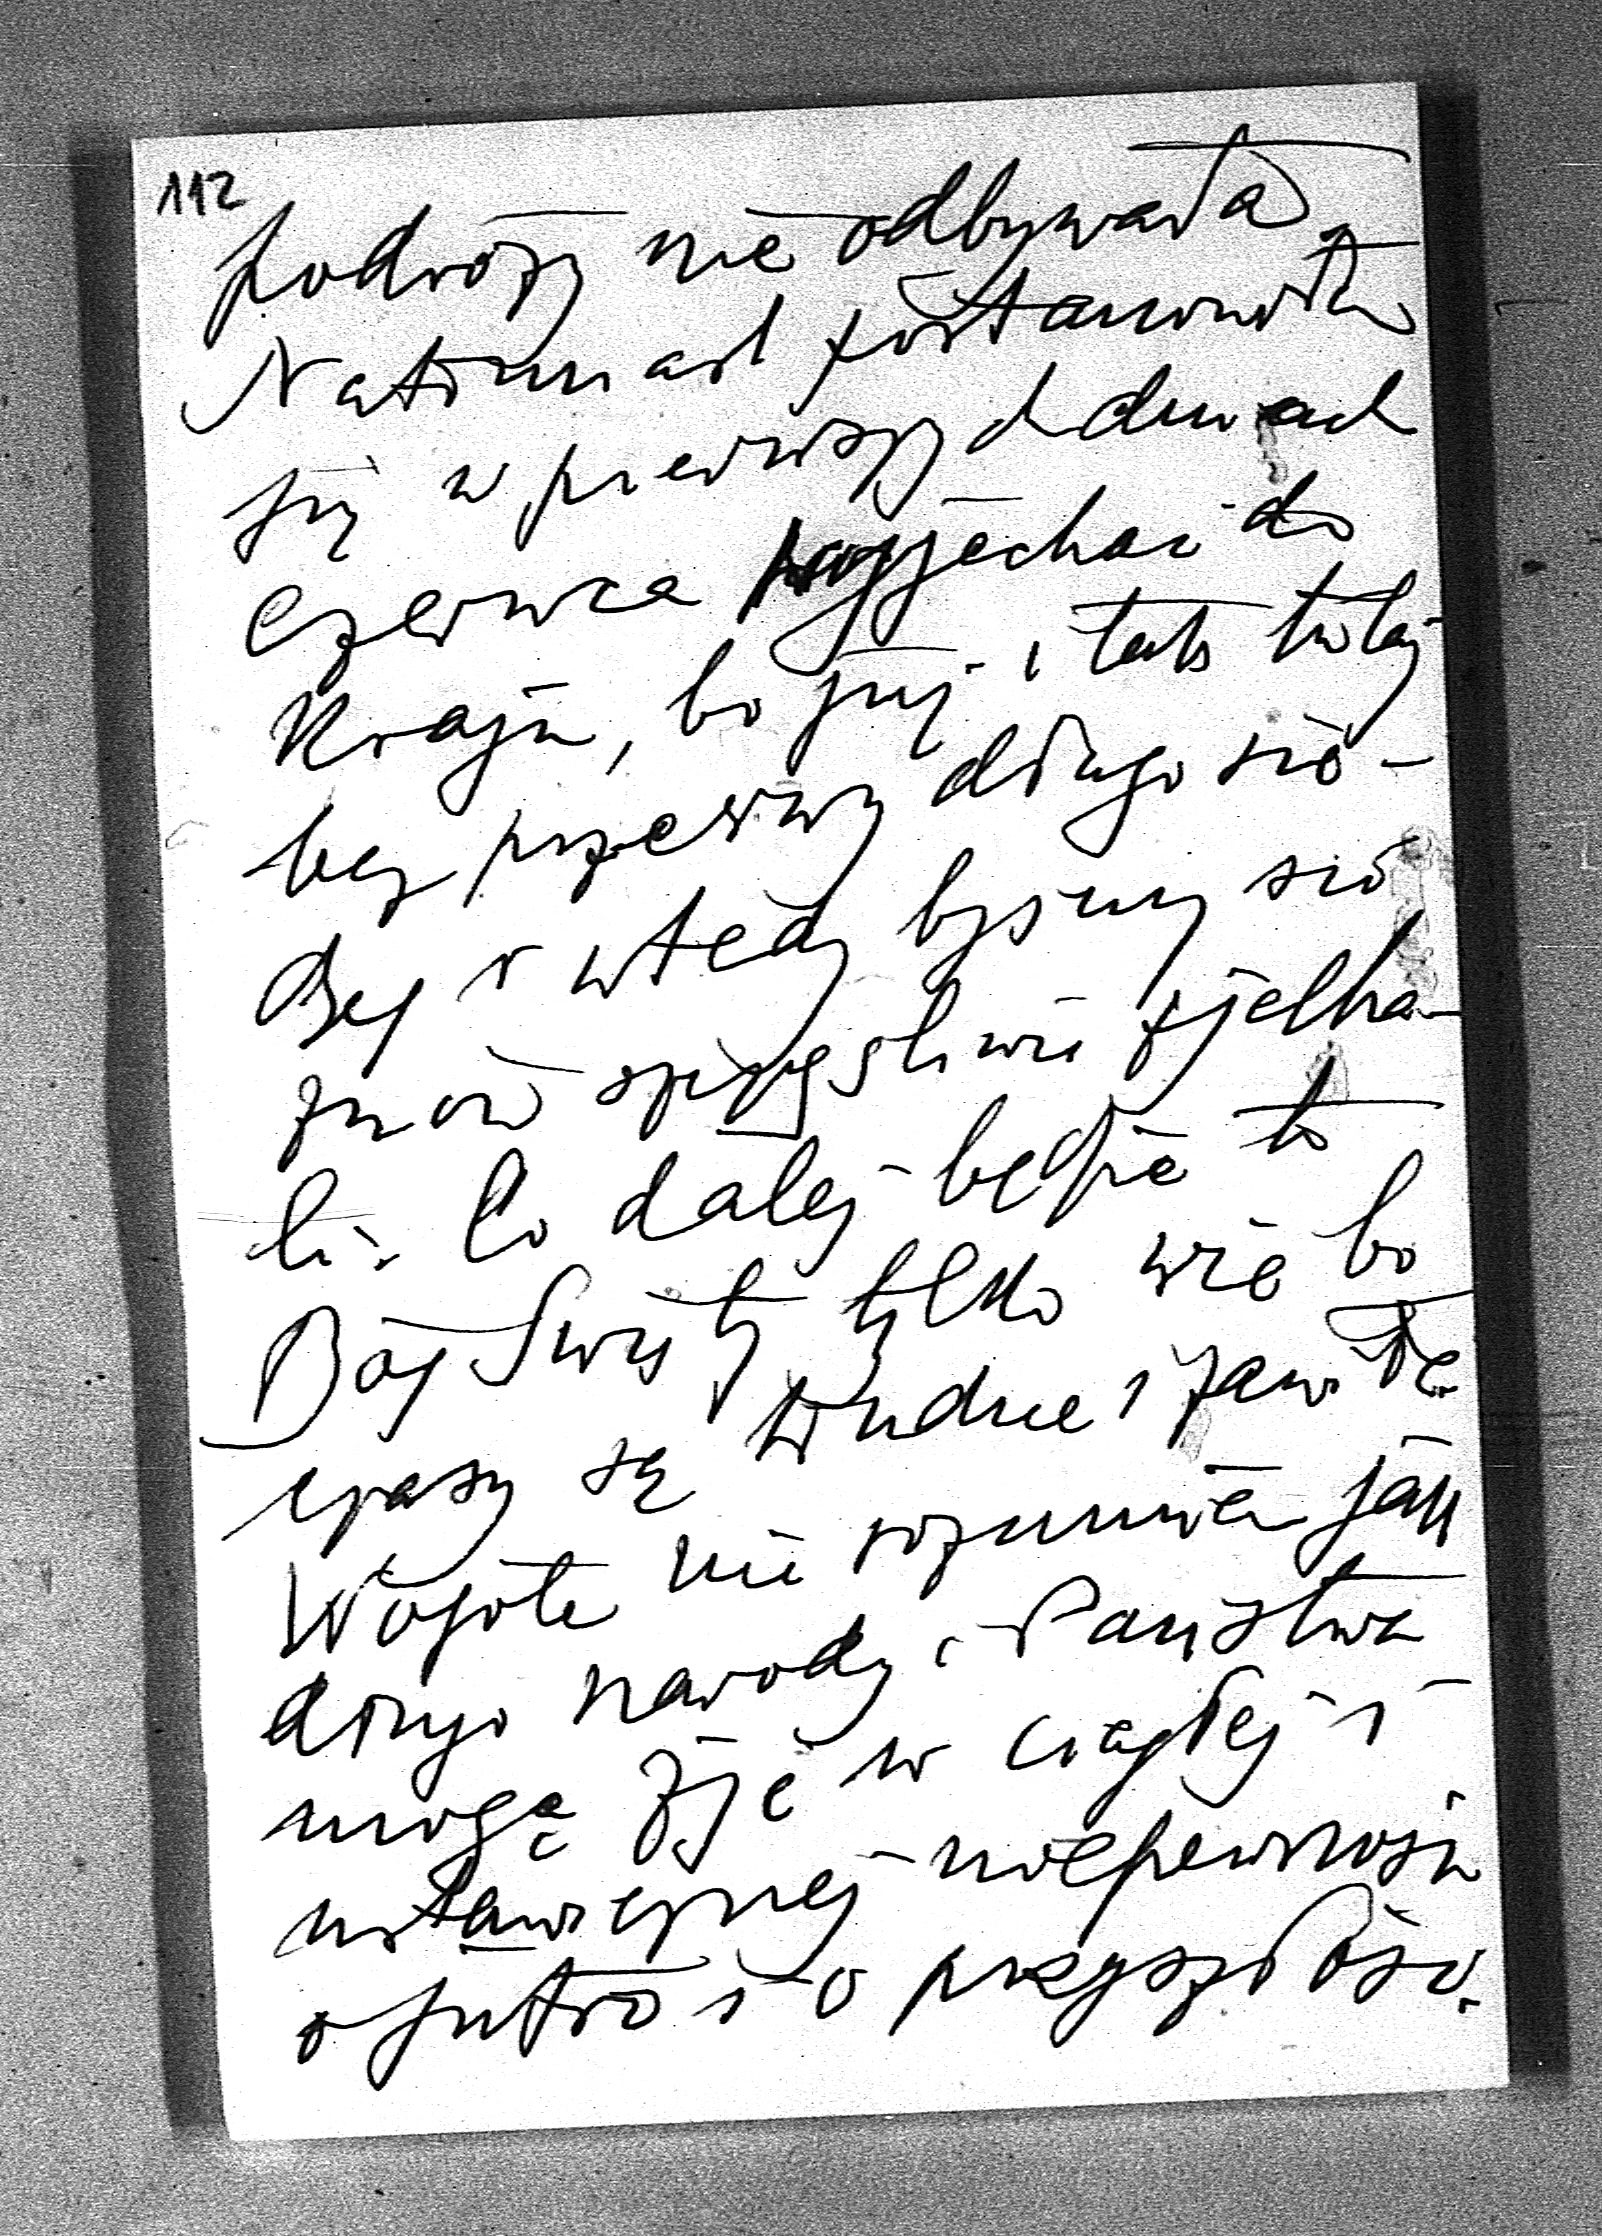 112
podróży nie odbywała.
Natomiast postanowiła
się w pierwszych dniach
czerwca wyjechać do
Kraju, bo już i tak tutaj
bez przerwy długo sie-
dzę i wtedy byśmy się
znów szczęśliwie zjecha-
li. Co dalej będzie to
Bóg Święty tylko wie bo
czasy są trudne i zawiłe.
Wogóle nie rozumiem jak
długo narody i Państwa
mogą żyć w ciągłej i
ustawicznej niepewności
o jutro i o przyszłość.